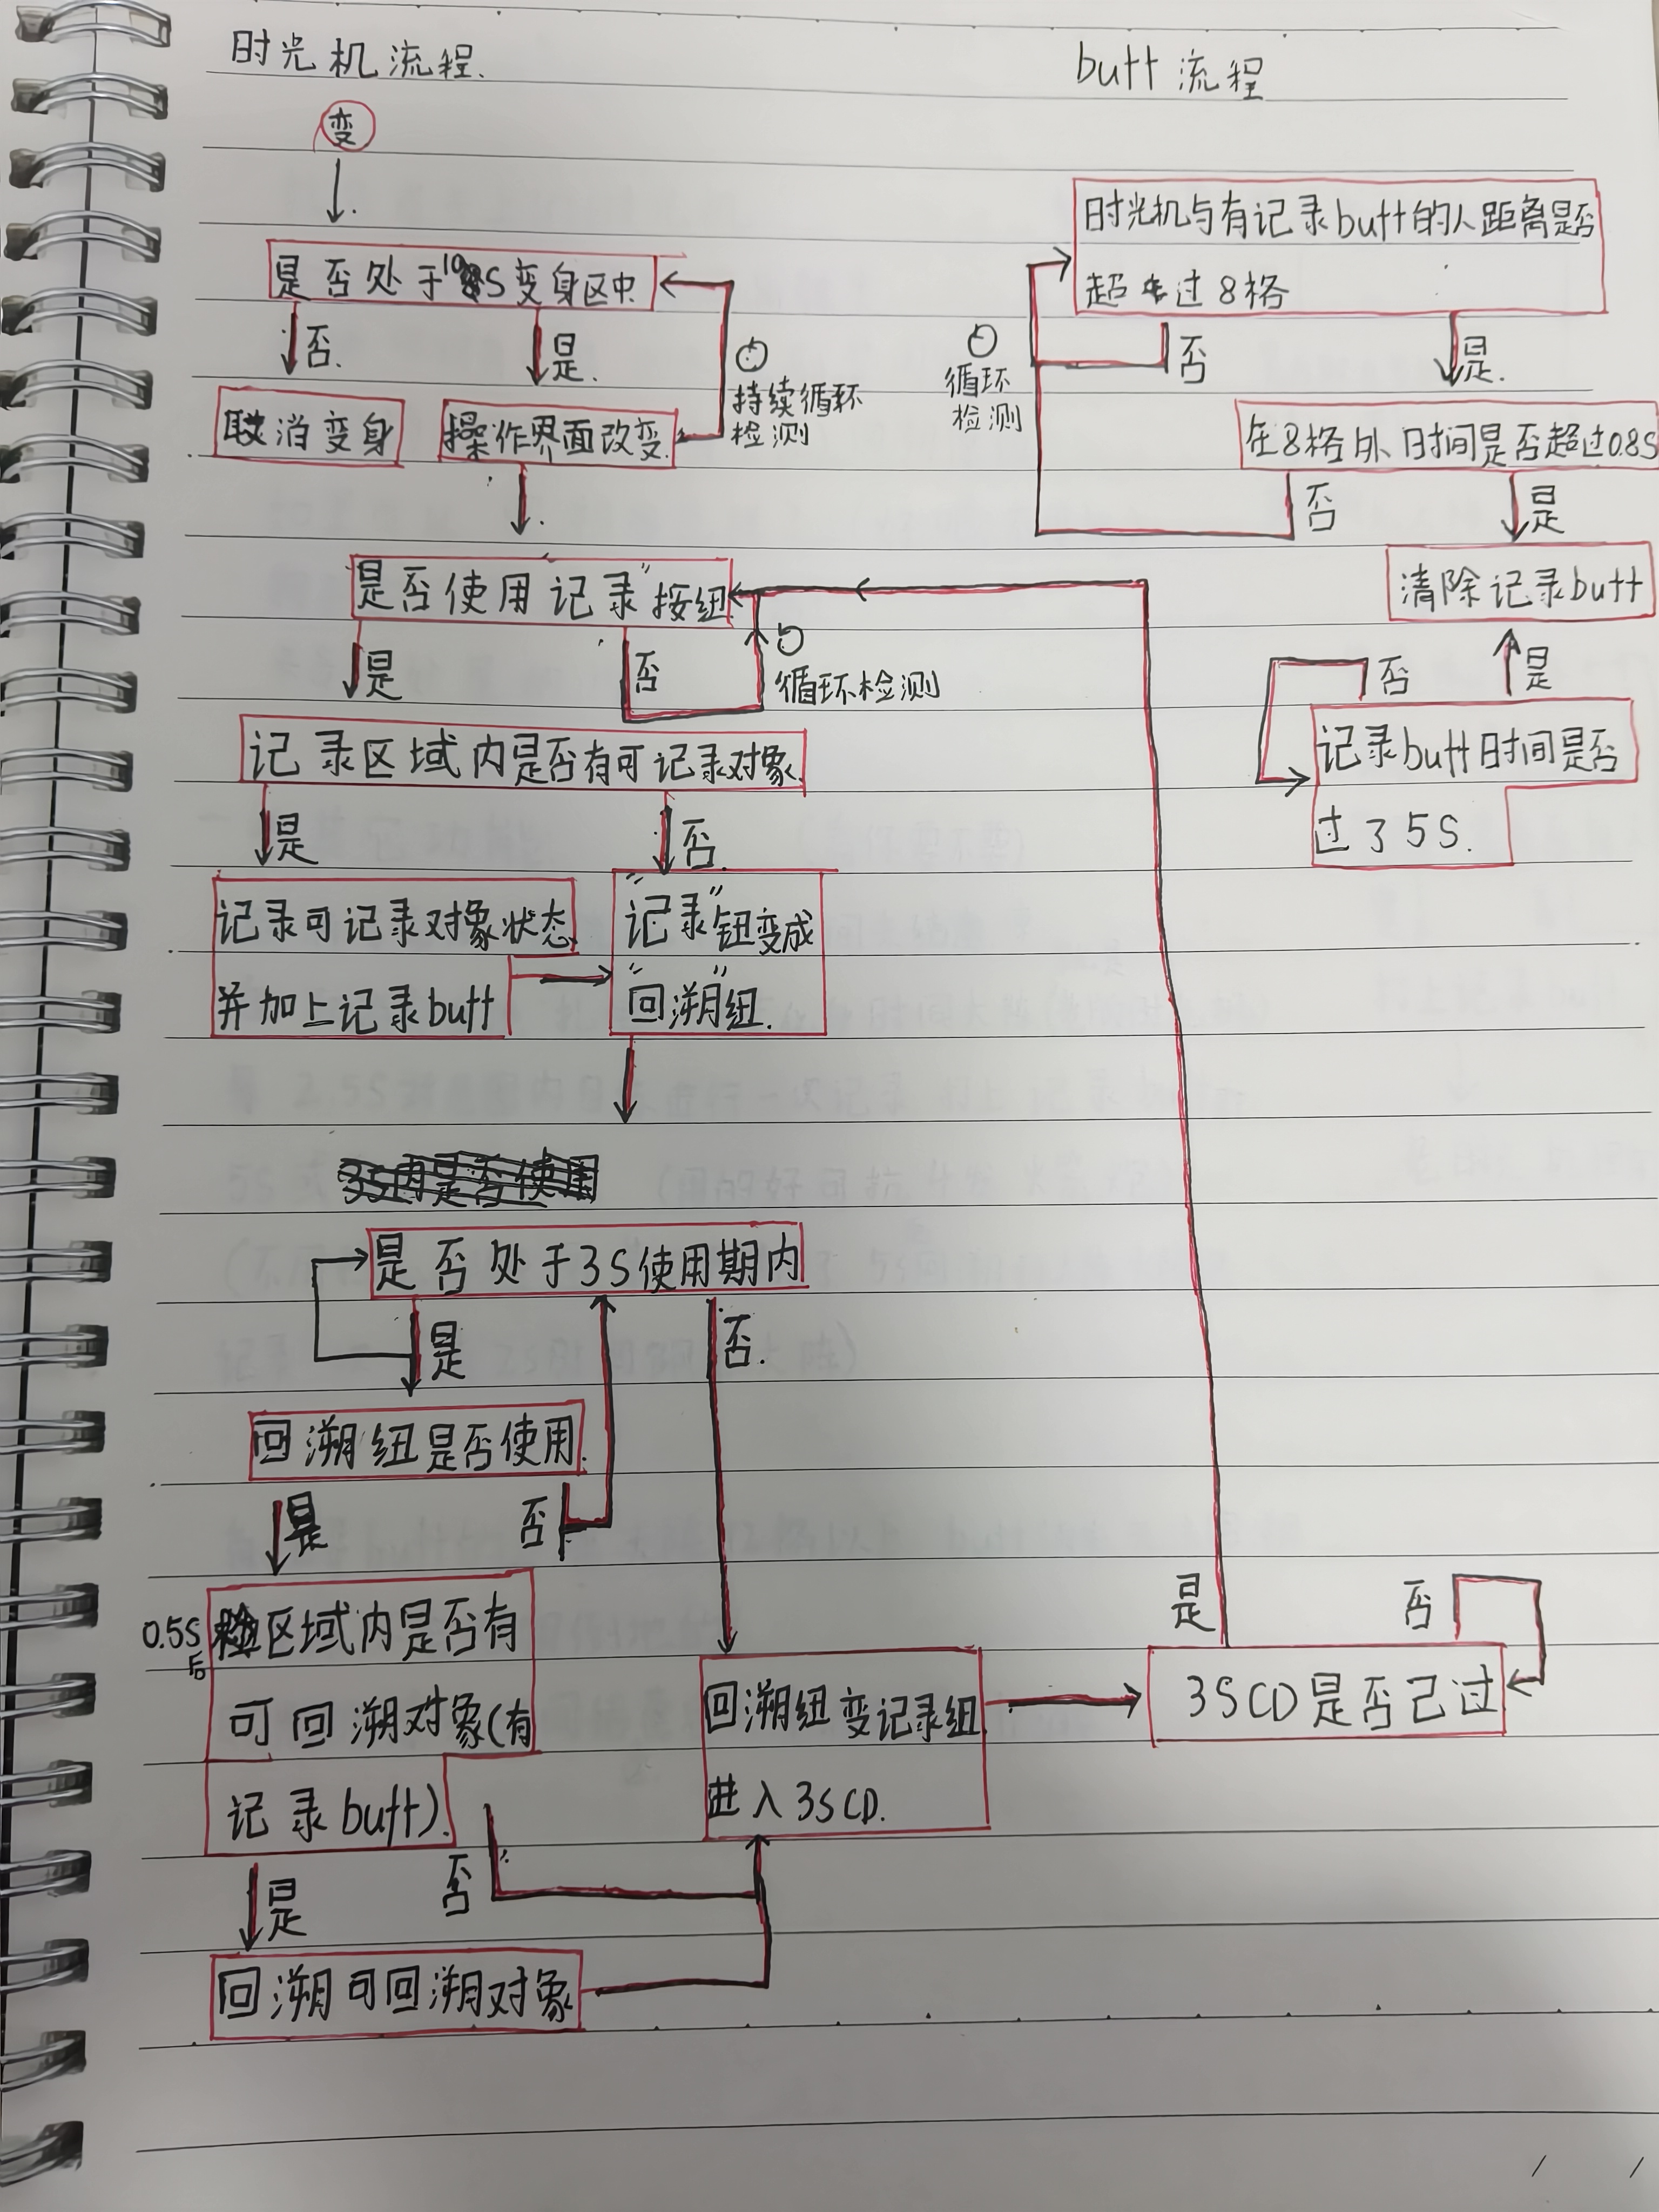 时光机流程.
butt 流程
变
是否处于10S变身区中
否.
是.
持续循环
检测
取消变身
操作界面改变.
是否使用"记录"按纽
是
否
循环检测
记录区域内是否有可记录对象.
是
否.
记录可记录对象状态
并加上记录butt
"记录"钮变成
"回溯"纽.
3S内是否使用
是否处于3S使用期内
是
否.
回溯纽是否使用.
是
否
0.5S
后
检区域内是否有
可回溯对象(有
记录butt).
是
否
回溯可回溯对象
回溯纽变记录纽
进入3SCD.
3SCD是否已过
是
否
时光机与有记录butt的人距离是否
超过8格
循环
检测
否
是.
在8格外时间是否超过0.8S
否
是
清除记录butt
否
是
记录butt时间是否
过35S.